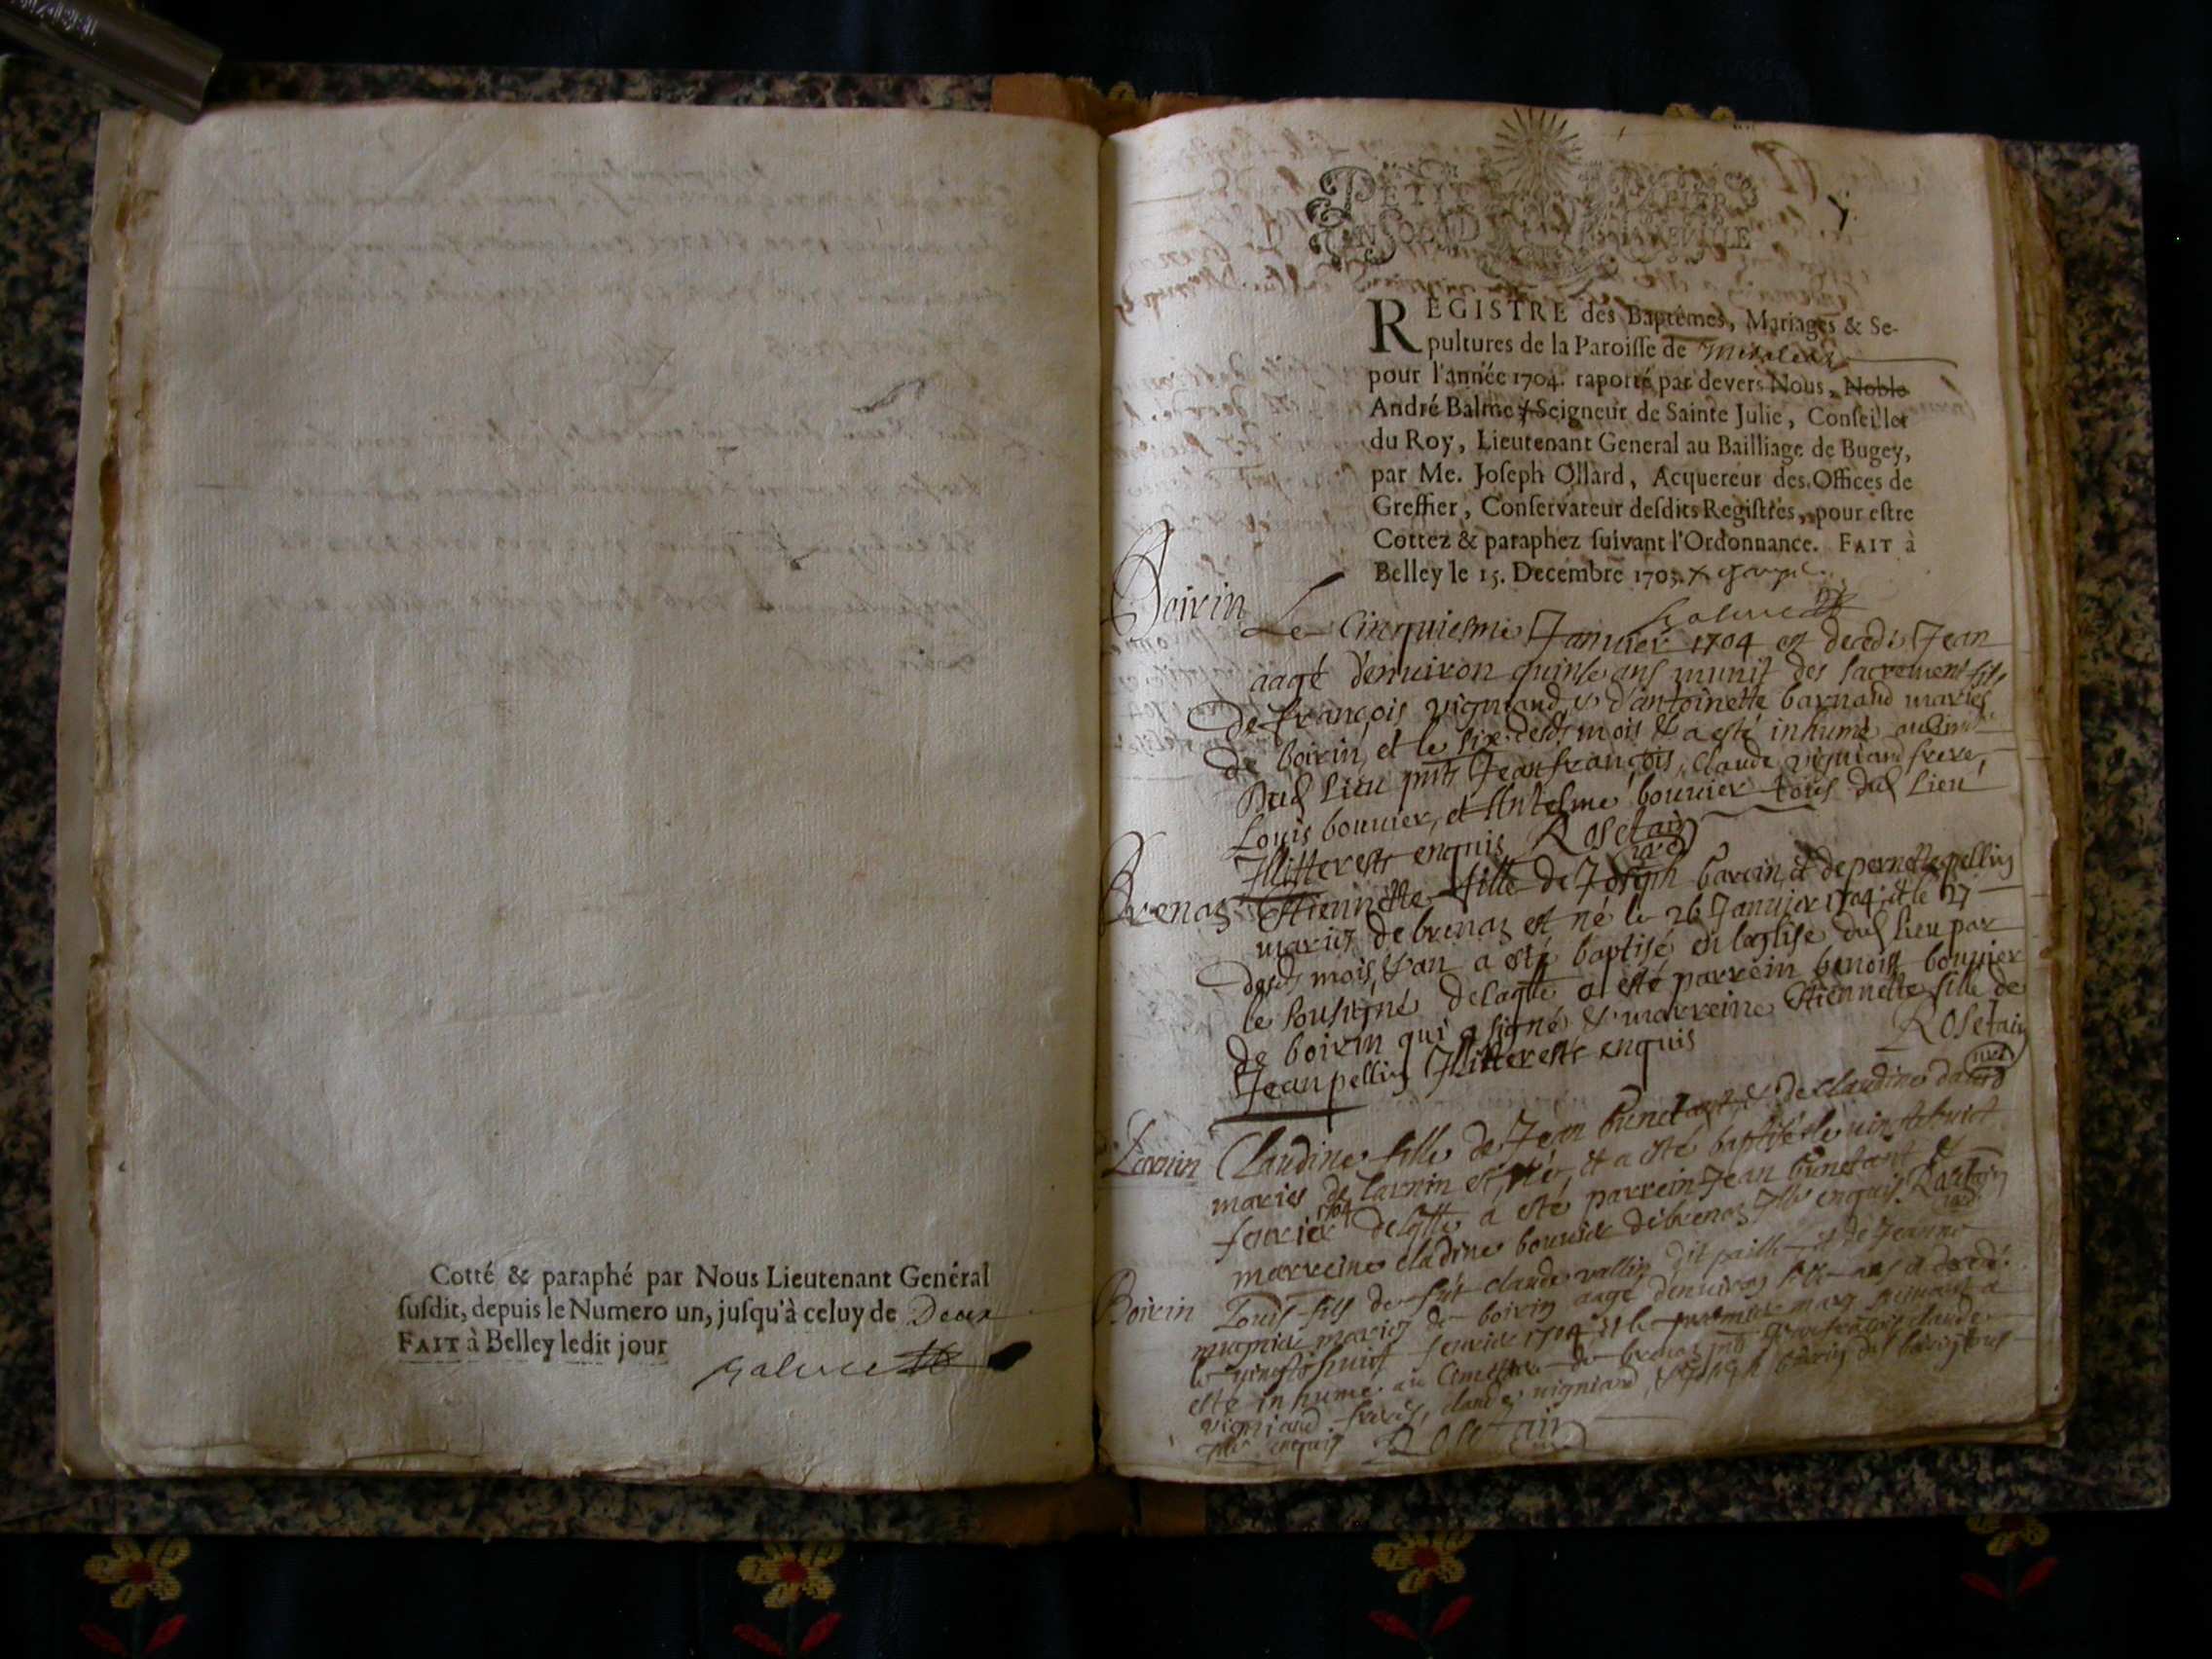 Cotté & paraphé par Nous Lieutenant Genéral
ſuſdit, depuis le Numero un, juſqu'à celuy de Deux
FAIT à Belley ledit jour
PETIT PAPIER
REGISTRE des Baptêmes, Mariages & Se-
pultures de la Paroiſſe de
pour l'année 1704. raporté par devers Nous, Noble
André Balme Seigneur de Sainte Julie, Conſeiller
du Roy, Lieutenant General au Bailliage de Bugey,
par Me. Joſeph Ollard, Acquereur des Offices de
Greffier, Conſervateur deſdits Regiſtres, pour eſtre
Cottez & paraphez ſuivant l'Ordonnance. FAIT à
Belley le 15. Decembre 1703.
Boirin
Le Cinquiesme Januier 1704 est decedé Jean
aagé d'enuiron quinse ans munit des sacrements fils
de françois vigniand & d'antoinette barnaud mariés
de boirin, et le six desd mois & a esté inhumé
Dud Lieu pnts Jean françois, claude vigniand frere,
Louis bouuier, et Antelme bouuier tous dud Lieu
Illitterés enquis Rosetain
curé
Brenaz
Estiennette fille de Joseph barin et de pernette pellin
mariés de brenaz est né le 26 Januier 1704 et le 27
desd mois & an a esté baptisé en leglise dud lieu par
le sousigné delaqlle a esté parrein benoist bouuier
de boirin qui a signé & marreine Estiennette fille de
Jean pellin Illitterés enquis Rosetain
curé
Larnin
Claudine fille de Jean & de claudine
mariés de Larnin est né, et a esté baptisé le vingthuict
feurier 1704 delaqlle a esté parrein Jean &
marreine cladine bouuier de brenaz Ills enquis Rosetain
Boirin
Louis fils de fut claude vallin dit paille et de Jeanne
mugnier mariés de boirin aagé denuiron ans a decedé
le vingthuict feurier 1704 et le premier mars suiuant a
esté inhumé au Cimettiere de brenaz pnts françois claude
vigniand freres, claude vigniand, & Joseph barin de boirin tous
Ills enquis Rosetain